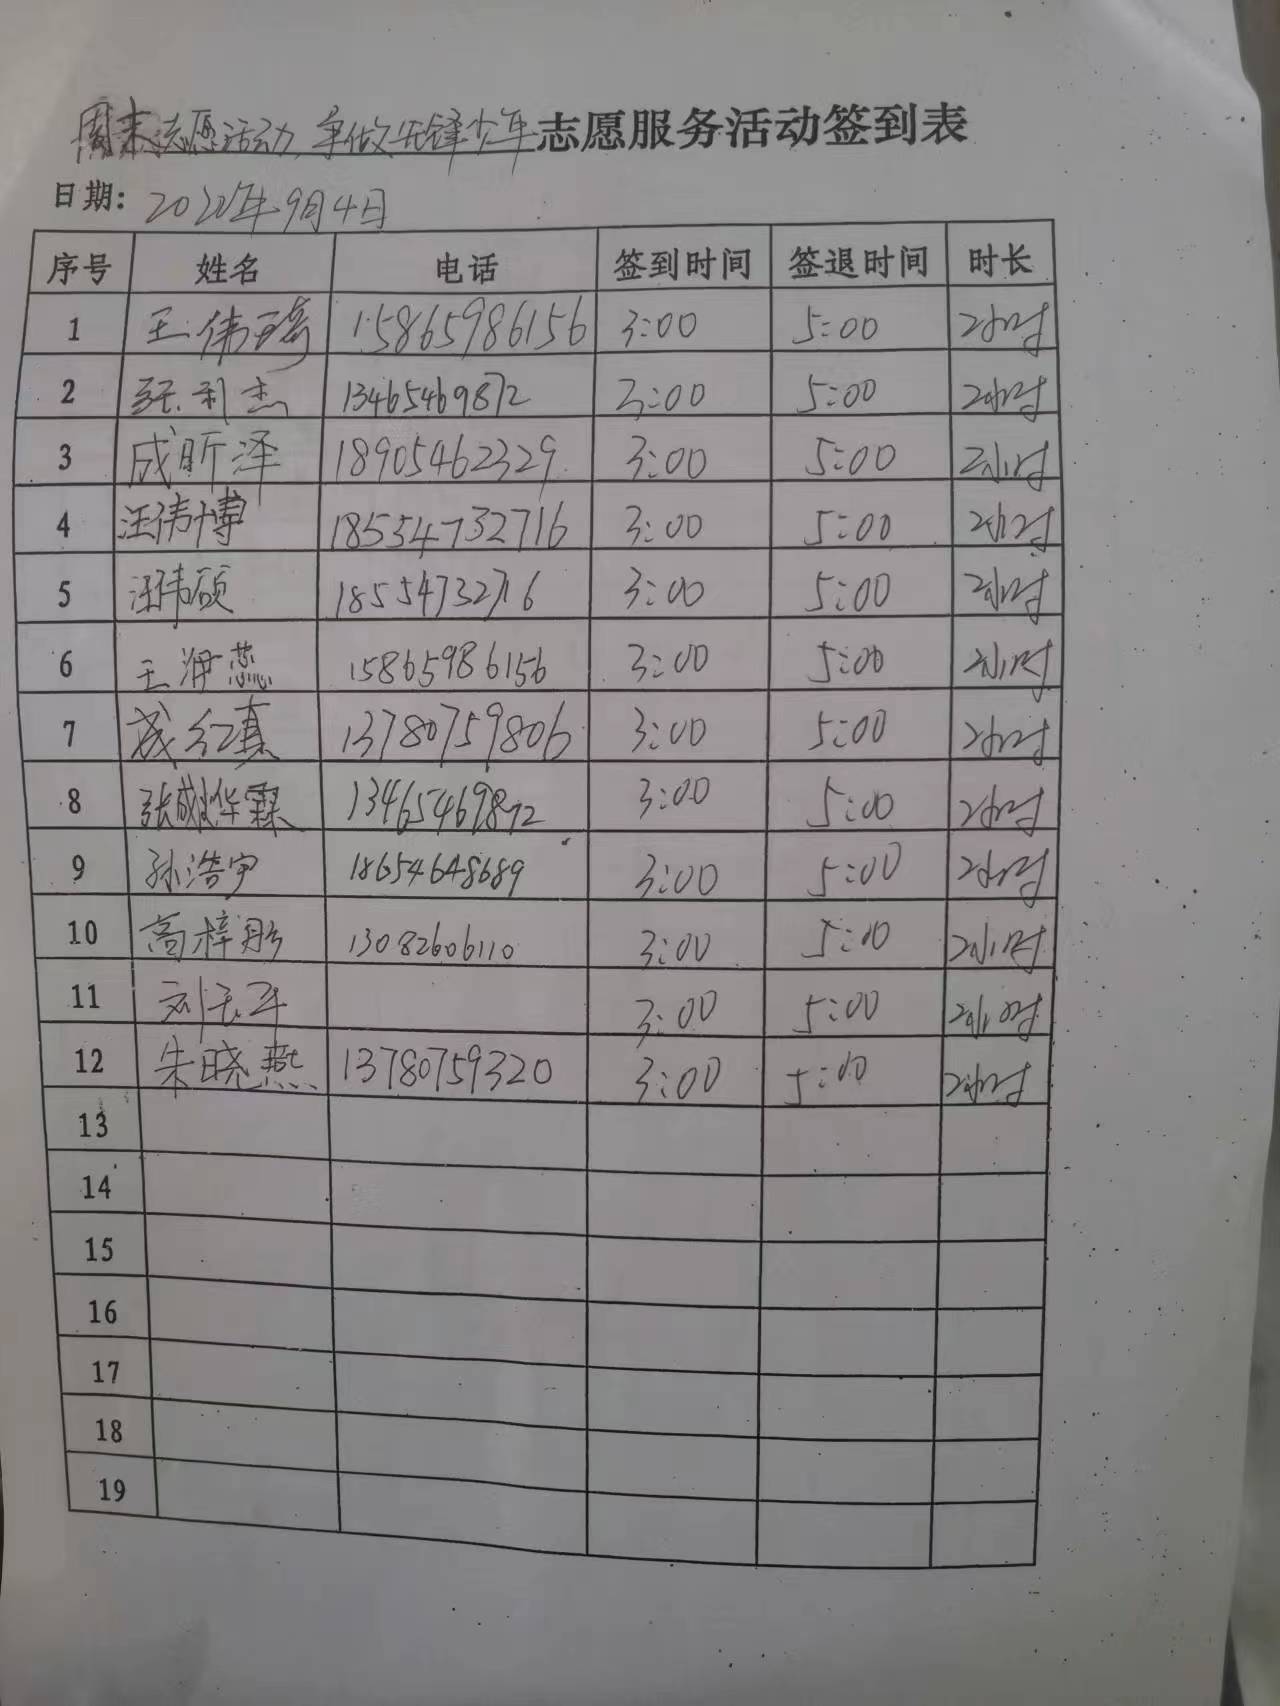 周末志愿活动,争做先锋少年志愿服务活动签到表
日期: 年9月4日
序号 姓名 电话 签到时间 签退时间 时长
1 王伟琦 15865986156 3:00 5:00 2小时
2 张利杰 13465469872 3:00 5:00 2小时
3 成昕泽 18905462329 3:00 5:00 2小时
4 汪伟博 18554732716 3:00 5:00 2小时
5 汪伟硕 18554732716 3:00 5:00 2小时
6 王海蕊 15865986156 3:00 5:00 2小时
7 成红真 13780759806 3:00 5:00 2小时
8 张成烨霖 13465469872 3:00 5:00 2小时
9 孙浩宇 18654648689 3:00 5:00 2小时
10 高梓彤 13082606110 3:00 5:00 2小时
11 3:00 5:00 2小时
12 朱晓燕 13780759320 3:00 5:00 2小时
13
14
15
16
17
18
19